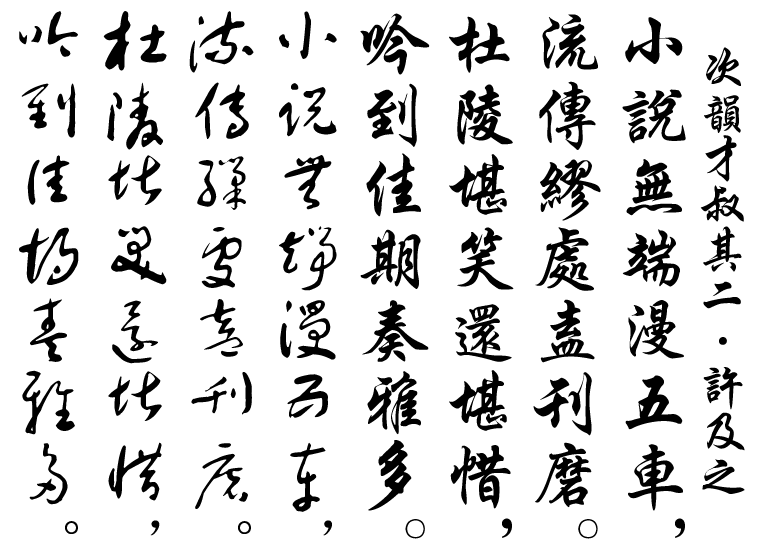 次韻才叔其二・許及之
小說無端漫五車,
流傳繆處盍刊磨。
杜陵堪笑還堪惜,
吟到佳期奏雅多。
小說無端漫五車,
流傳繆處盍刊磨。
杜陵堪笑還堪惜,
吟到佳期奏雅多。